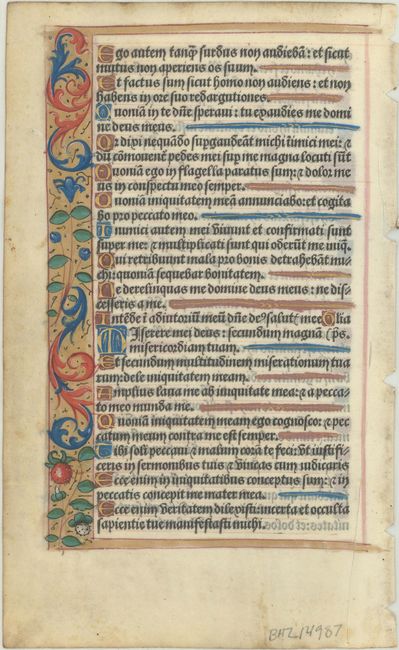 Ego autem tanq̃ surdus non audiebã: et sicut
mutus non aperiens os suum.
Et factus sum sicut homo non audiens: et non
habens in ore suo redargutiones.
Quoniã in te dñe speravi: tu exaudies me domi
ne deus meus.
Qr dixi nequãdo supgaudeãt michi inimici mei: ⁊
dũ cõmovent̃ pedes mei sup me magna locuti sũt
Quoniã ego in flagella paratus sum: ⁊ dolor me
us in conspectu meo semper.
Quoniã iniquitatem meã annunciabo: et cogita
bo pro peccato meo.
Inimici autem mei vivunt et confirmati sunt
super me: ⁊ multiplicati sunt qui oderũt me iniq̃.
Qui retribuunt mala pro bonis detrahebãt mi
chi: quoniã sequebar bonitatem.
Ne derelinquas me domine deus meus: ne dis
cesseris a me.
Intẽde ĩ adiutoriũ meũ dñe deꝰ salutꝭ mee Glia
Miserere mei deus: secundum magnã ps̃.
misericordiam tuam.
Et secundum multitudinem miserationum tua
rum: dele iniquitatem meam.
Amplius lava me ab iniquitate mea: ⁊ a pecca-
to meo munda me.
Quoniã iniquitatem meam ego cognosco: ⁊ pec
catum meum contra me est semper.
Tibi soli peccavi ⁊ malum corã te feci: vt iustifi-
ceris in sermonibus tuis ⁊ vincas cum iudicaris
Ecce enim in iniquitatibus conceptus sum: ⁊ in
peccatis concepit me mater mea.
Ecce enim veritatem dilexisti: incerta et occulta
sapientie tue manifestasti michi.
BHL14987